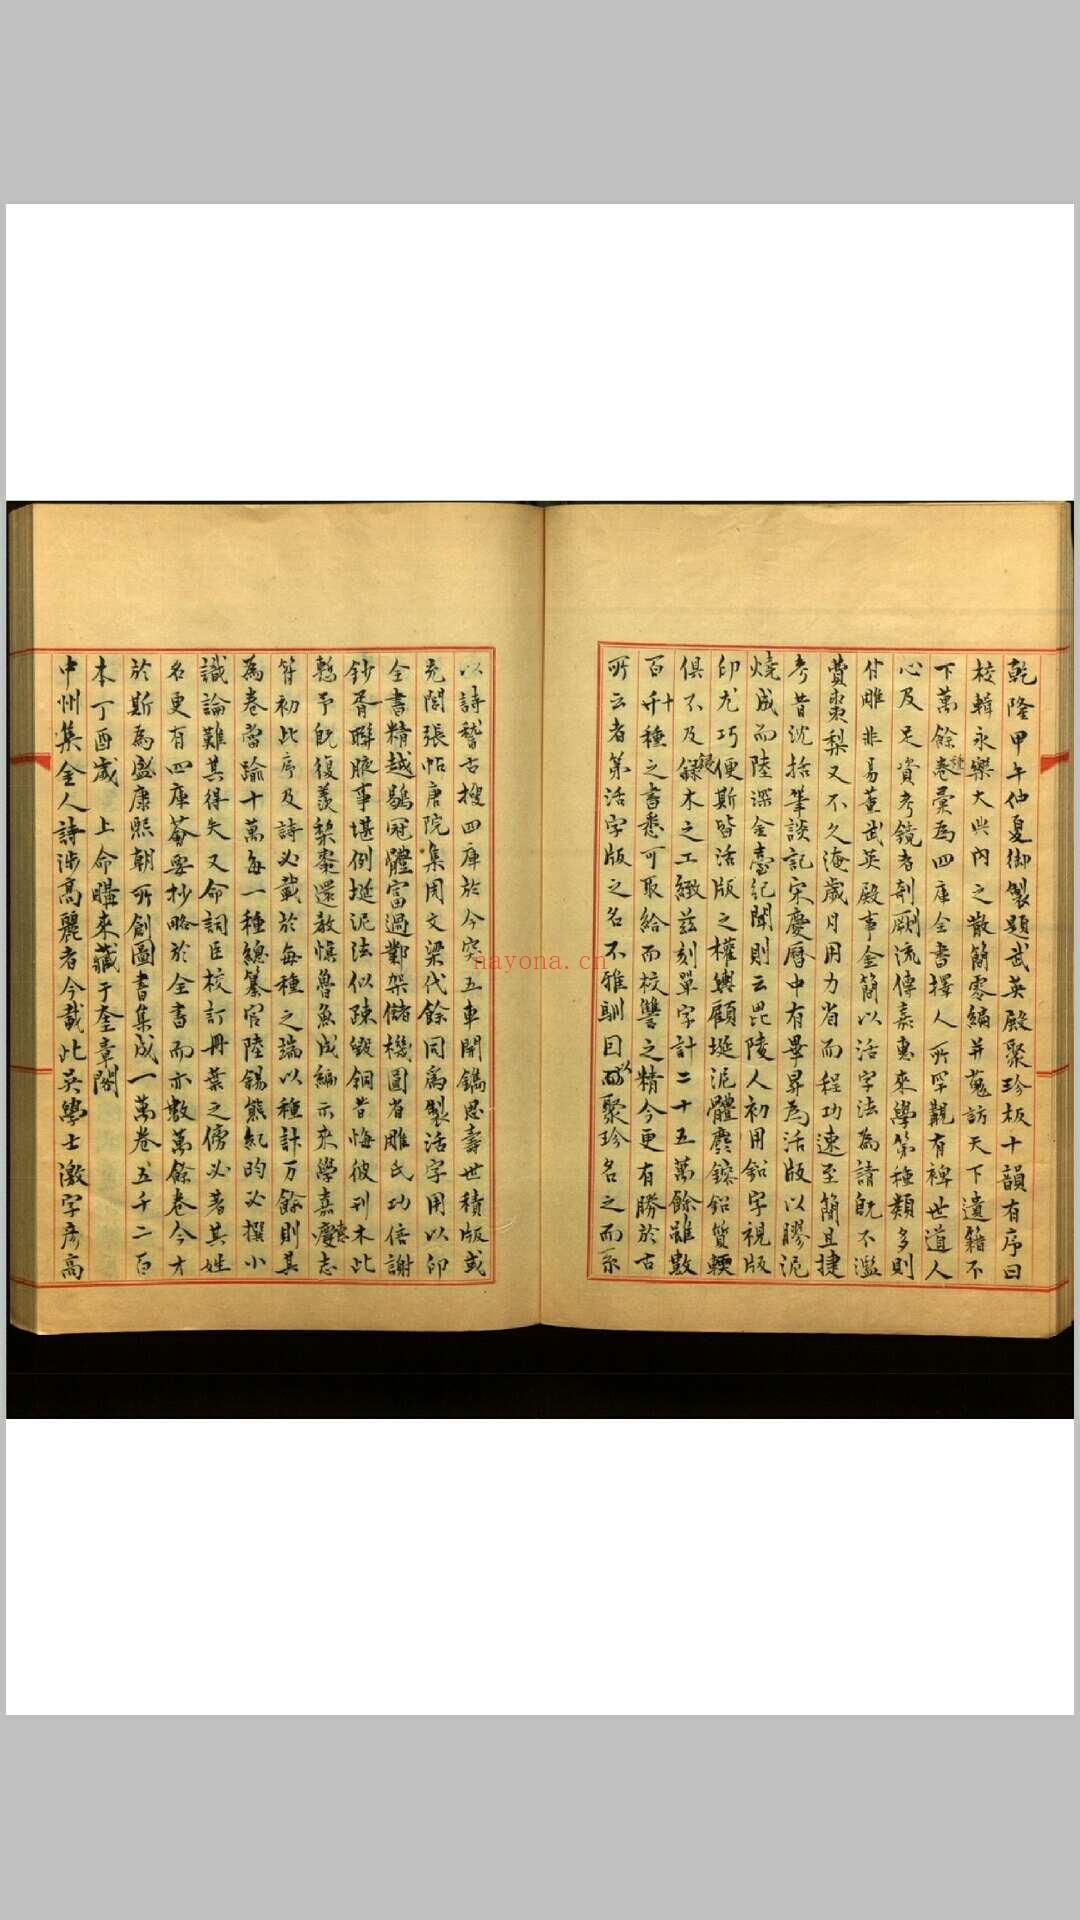 乾隆甲午仲夏御製題武英殿聚珍板十韻有序曰
校輯永樂大典內之散簡零編并蒐訪天下遺籍不
下萬餘卷種彙為四庫全書擇人所罕覯有裨世道人
心及足資考鏡者剞劂流傳嘉惠來學第種類多則
付雕非易董武英殿事金簡以活字法為請既不濫
費棗梨又不久淹歲月用力省而程功速至簡且捷
考昔沈括筆談記宋慶曆中有畢昇為活版以膠泥
燒成而陸深金臺紀聞則云毘陵人初用鉛字視版
印尤巧便斯皆活版之權輿顧埏泥體麤鎔鉛質輭
俱不及鋟木之工緻茲刻單字計二十五萬餘雖數
百十種之書悉可取給而校讐之精今更有勝於古
所云者第活字版之名不雅馴因以聚珍名之而系
以詩稽古搜四庫於今突五車開鐫思壽世積版或
充閭張帖唐院集周文梁代餘同為製活字用以印
全書精越鶡冠體富過鄴架儲機圖省雕氏功倍謝
鈔胥聯腋事堪例埏泥法似疎毀銅昔悔彼刊木此
慙予既復羨梨棗還教慎魯魚成編示來學嘉惠志
符初此序及詩必載於每種之端以種計万餘則其
為卷當踰十萬每一種總纂官陸錫熊紀昀必撰小
識論難其得失又命詞臣校訂冊葉之傍必著其姓
名更有四庫薈要抄略於全書而亦數萬餘卷今方
於斯為盛康熙朝所創圖書集成一萬卷五千二百
本丁酉歲 上命購來藏于奎章閣
中州集金人詩涉高麗者今載此吳學士激字彥高
nayona.cn